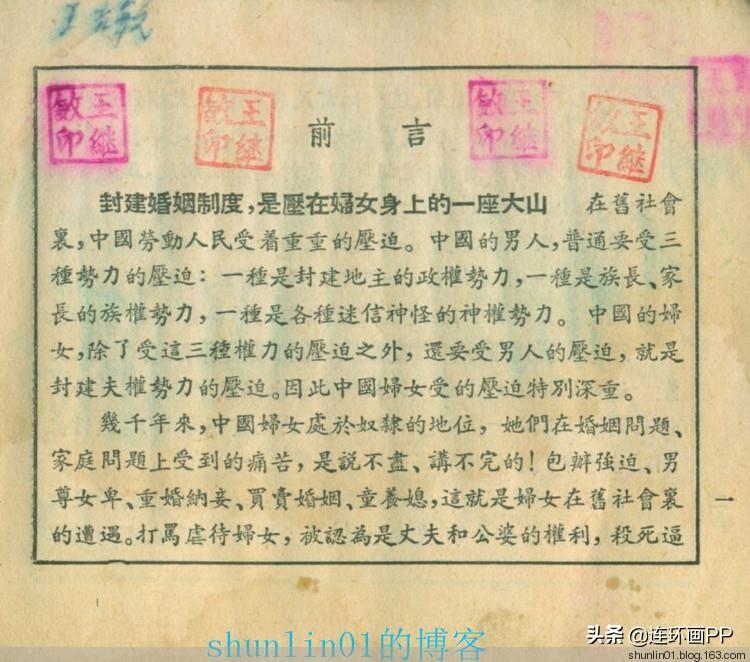 王吉敏
王继敏印
王继敏印
王继敏印
王继敏印
前言
封建婚姻制度，是壓在婦女身上的一座大山 在舊社會
裏，中國勞動人民受着重重的壓迫。中國的男人，普通要受三
種勢力的壓迫：一種是封建地主的政權勢力，一種是族長、家
長的族權勢力，一種是各種迷信神怪的神權勢力。中國的婦
女，除了受這三種權力的壓迫之外，還要受男人的壓迫，就是
封建夫權勢力的壓迫。因此中國婦女受的壓迫特別深重。
幾千年來，中國婦女處於奴隸的地位，她們在婚姻問題、
家庭問題上受到的痛苦，是説不盡、講不完的！包辦強迫、男
尊女卑、重婚納妾、買賣婚姻、童養媳，這就是婦女在舊社會裏
的遭遇。打罵虐待婦女，被認為是丈夫和公婆的權利，殺死逼
一
shunlin01的博客
头条 @连环画PP
shunlin01.blog.163.com